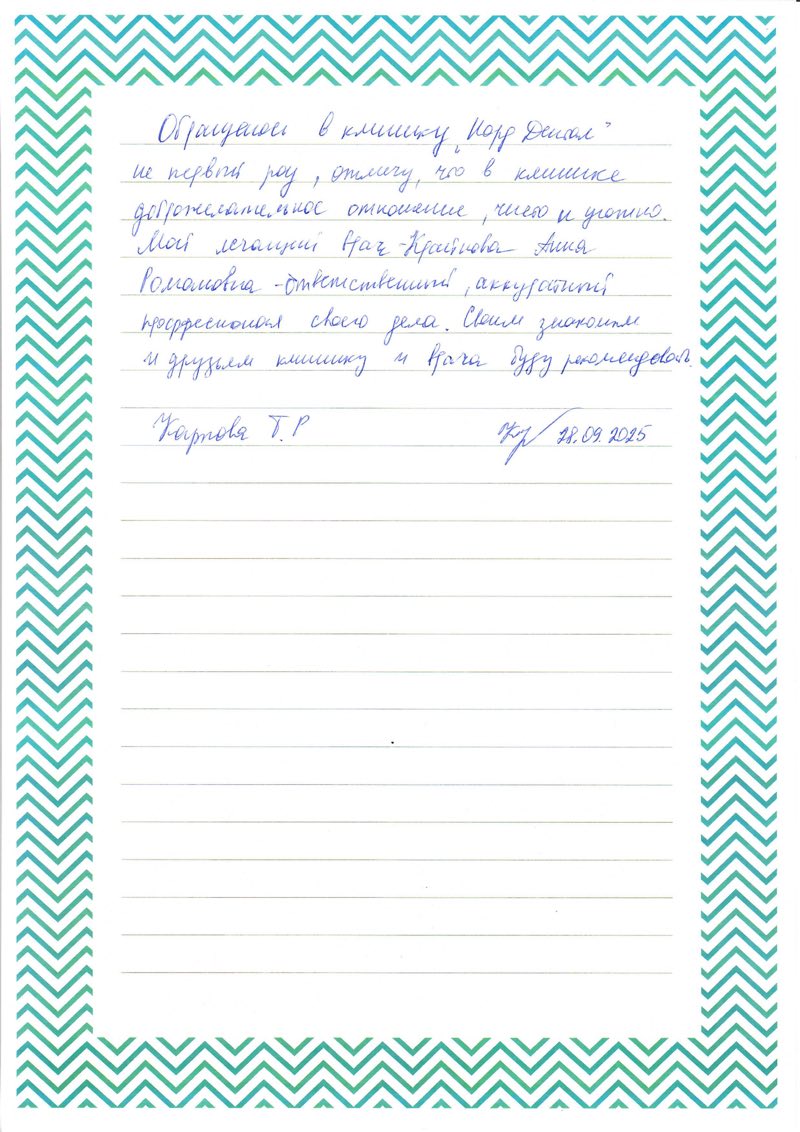 Обращаюсь в клинику „Норд Дентал"
не первый раз, отмечу, что в клинике
доброжелательное отношение, чисто и уютно.
Мой лечащий врач - Крайнова Анна
Романовна - ответственный, аккуратный
профессионал своего дела. Своим знакомым
и друзьям клинику и врача буду рекомендовать.
Карпова Т.Р
28.09.2025